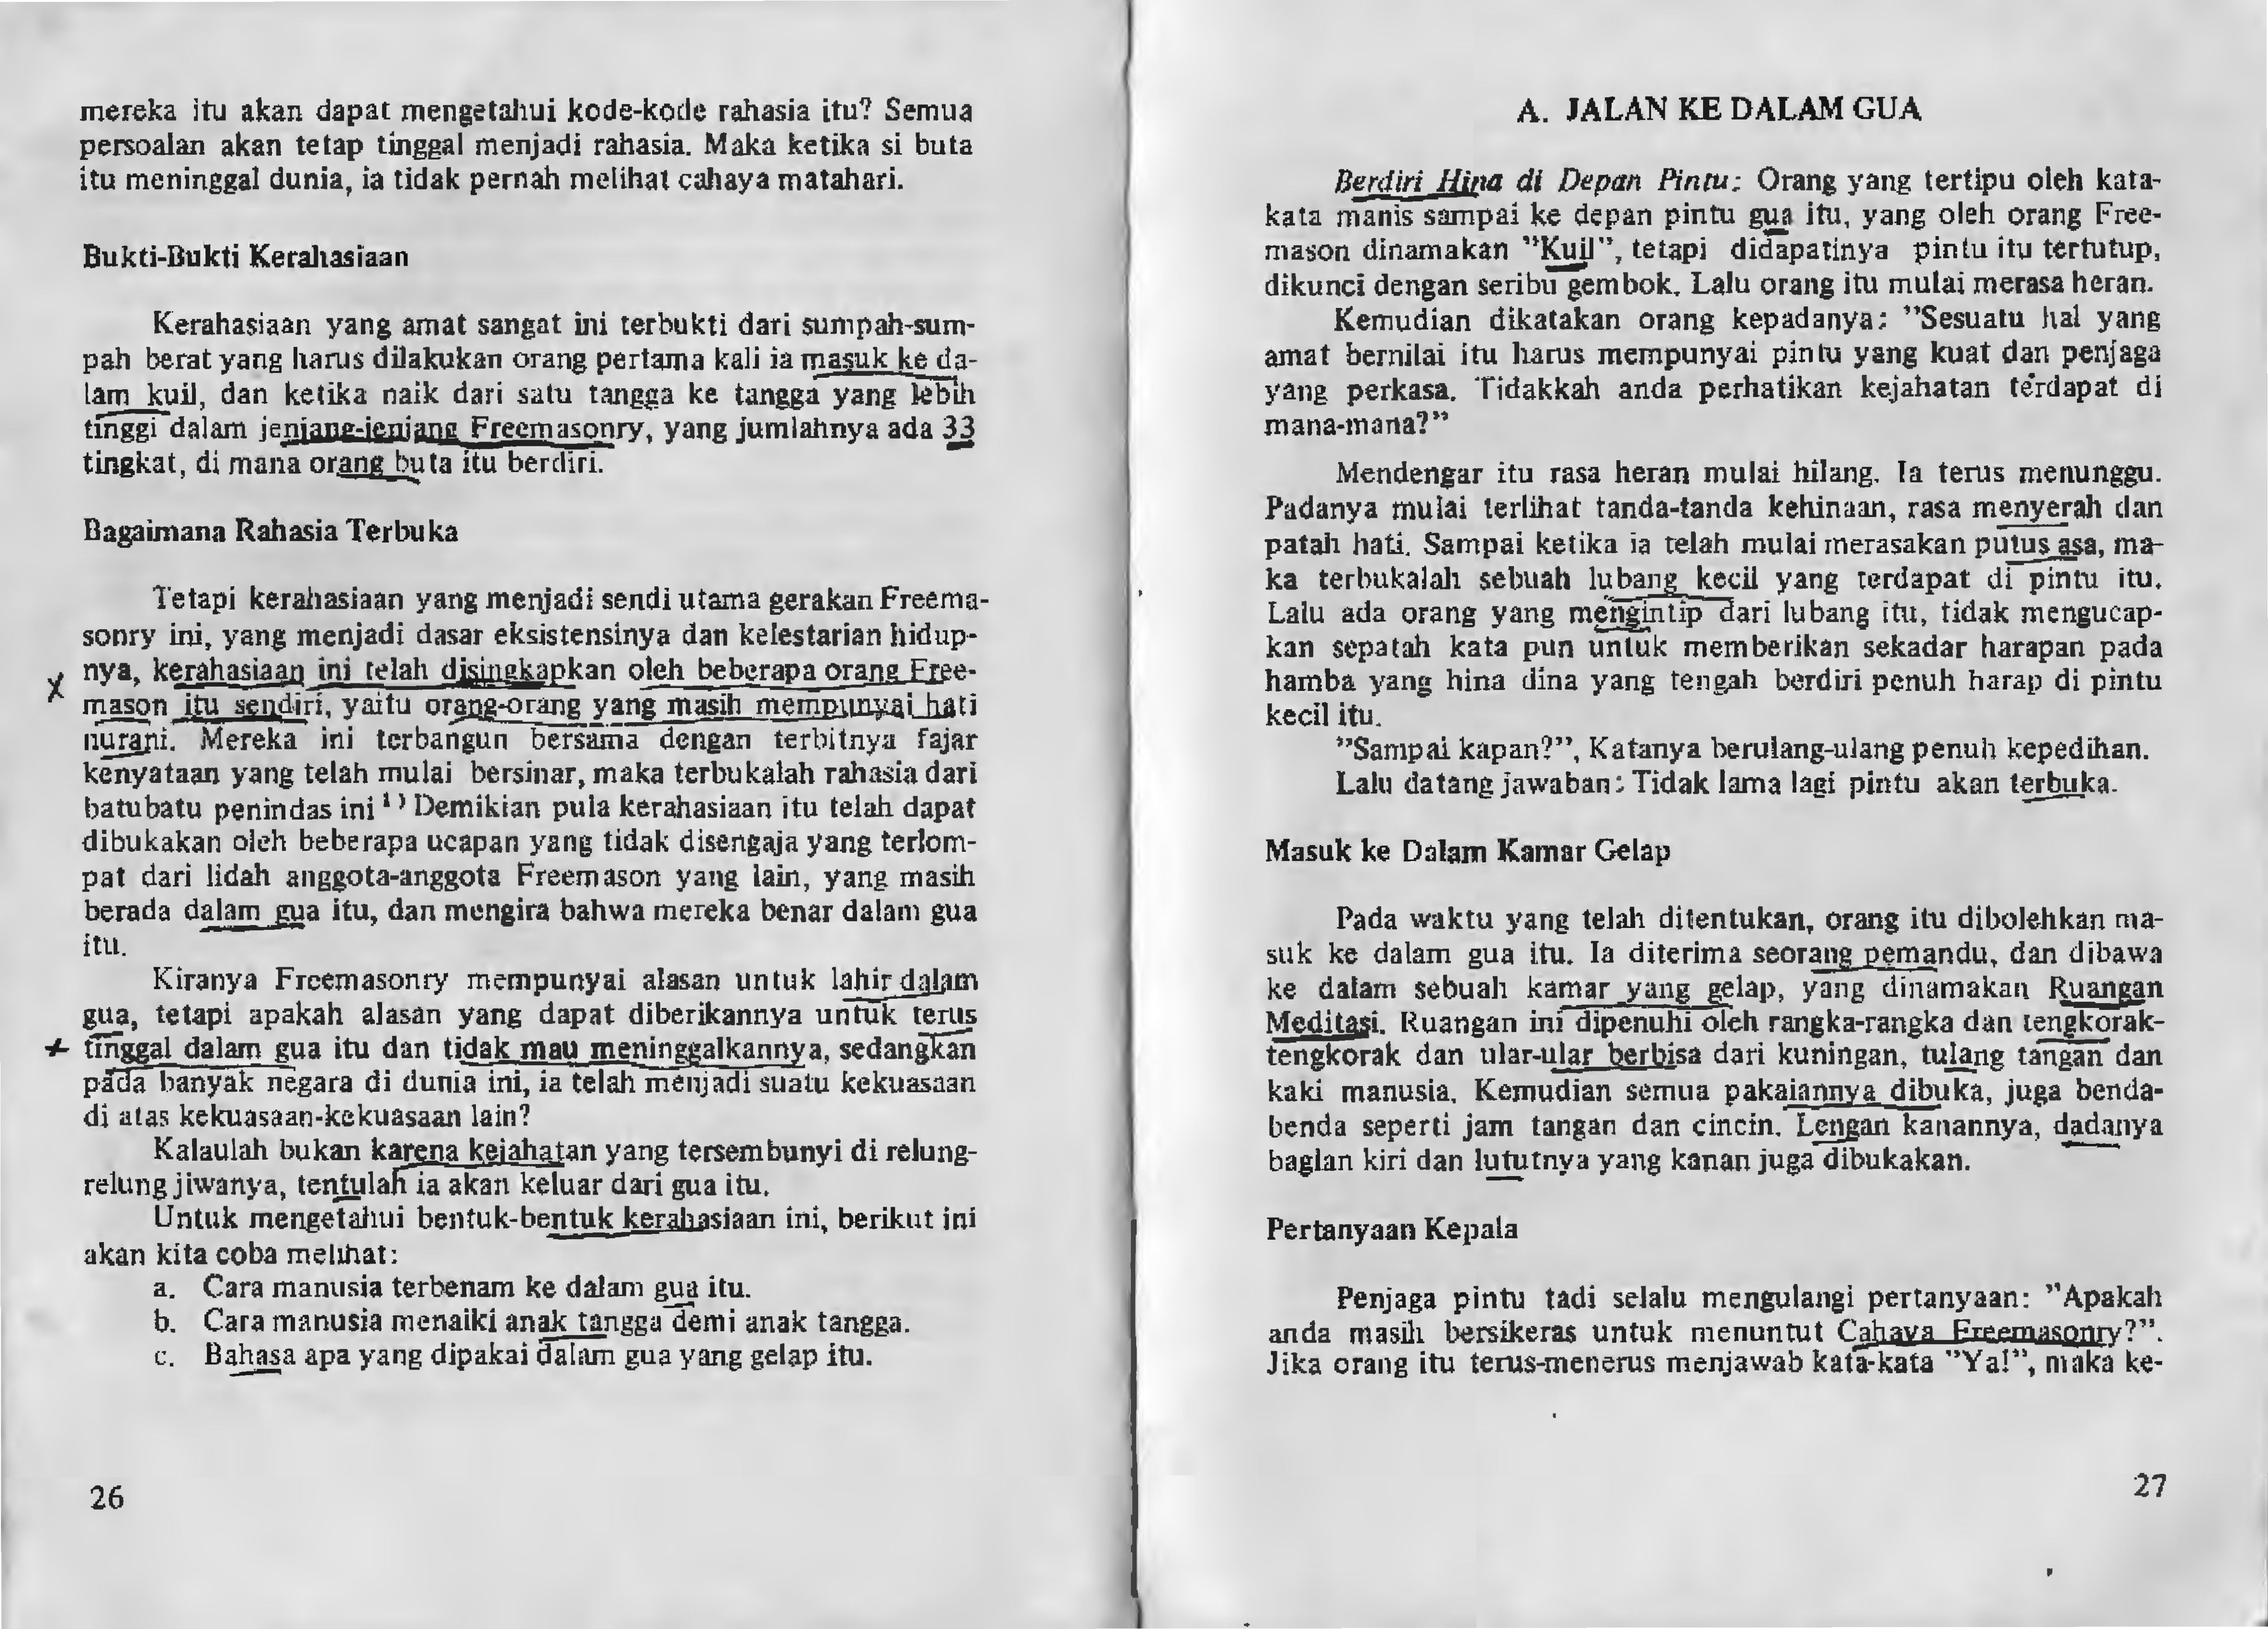 mereka itu akan dapat mengetahui kode-kode rahasia itu? Semua
persoalan akan tetap tinggal menjadi rahasia. Maka ketika si buta
itu meninggal dunia, ia tidak pernah melihat cahaya matahari.
Bukti-Bukti Kerahasiaan
Kerahasiaan yang amat sangat ini terbukti dari sumpah-sum-
pah berat yang harus dilakukan orang pertama kali ia masuk ke da-
lam kuil, dan ketika naik dari satu tangga ke tangga yang lebih
tinggi dalam jenjang-jenjang Freemasonry, yang jumlahnya ada 33
tingkat, di mana orang buta itu berdiri.
Bagaimana Rahasia Terbuka
Tetapi kerahasiaan yang menjadi sendi utama gerakan Freema-
sonry ini, yang menjadi dasar eksistensinya dan kelestarian hidup-
nya, kerahasiaan ini telah disingkapkan oleh beberapa orang Free-
mason itu sendiri, yaitu orang-orang yang masih mempunyai hati
nurani. Mereka ini terbangun bersama dengan terbitnya fajar
kenyataan yang telah mulai bersinar, maka terbukalah rahasia dari
batubatu penindas ini ¹) Demikian pula kerahasiaan itu telah dapat
dibukakan oleh beberapa ucapan yang tidak disengaja yang terlom-
pat dari lidah anggota-anggota Freemason yang lain, yang masih
berada dalam gua itu, dan mengira bahwa mereka benar dalam gua
itu.
Kiranya Freemasonry mempunyai alasan untuk lahir dalam
gua, tetapi apakah alasan yang dapat diberikannya untuk terus
tinggal dalam gua itu dan tidak mau meninggalkannya, sedangkan
pada banyak negara di dunia ini, ia telah menjadi suatu kekuasaan
di atas kekuasaan-kekuasaan lain?
Kalaulah bukan karena kejahatan yang tersembunyi di relung-
relung jiwanya, tentulah ia akan keluar dari gua itu.
Untuk mengetahui bentuk-bentuk kerahasiaan ini, berikut ini
akan kita coba melihat:
a. Cara manusia terbenam ke dalam gua itu.
b. Cara manusia menaiki anak tangga demi anak tangga.
c. Bahasa apa yang dipakai dalam gua yang gelap itu.
26
A. JALAN KE DALAM GUA
Berdiri Hina di Depan Pintu: Orang yang tertipu oleh kata-
kata manis sampai ke depan pintu gua itu, yang oleh orang Free-
mason dinamakan "Kuil", tetapi didapatinya pintu itu tertutup,
dikunci dengan seribu gembok. Lalu orang itu mulai merasa heran.
Kemudian dikatakan orang kepadanya: "Sesuatu hal yang
amat bernilai itu harus mempunyai pintu yang kuat dan penjaga
yang perkasa. Tidakkah anda perhatikan kejahatan terdapat di
mana-mana?"
Mendengar itu rasa heran mulai hilang. Ia terus menunggu.
Padanya mulai terlihat tanda-tanda kehinaan, rasa menyerah dan
patah hati. Sampai ketika ia telah mulai merasakan putus asa, ma-
ka terbukalah sebuah lubang kecil yang terdapat di pintu itu.
Lalu ada orang yang mengintip dari lubang itu, tidak mengucap-
kan sepatah kata pun untuk memberikan sekadar harapan pada
hamba yang hina dina yang tengah berdiri penuh harap di pintu
kecil itu.
"Sampai kapan?", Katanya berulang-ulang penuh kepedihan.
Lalu datang jawaban: Tidak lama lagi pintu akan terbuka.
Masuk ke Dalam Kamar Gelap
Pada waktu yang telah ditentukan, orang itu dibolehkan ma-
suk ke dalam gua itu. Ia diterima seorang pemandu, dan dibawa
ke dalam sebuah kamar yang gelap, yang dinamakan Ruangan
Meditasi. Ruangan ini dipenuhi oleh rangka-rangka dan tengkorak-
tengkorak dan ular-ular berbisa dari kuningan, tulang tangan dan
kaki manusia. Kemudian semua pakaiannya dibuka, juga benda-
benda seperti jam tangan dan cincin. Lengan kanannya, dadanya
bagian kiri dan lututnya yang kanan juga dibukakan.
Pertanyaan Kepala
Penjaga pintu tadi selalu mengulangi pertanyaan: "Apakah
anda masih bersikeras untuk menuntut Cahaya Freemasonry?".
Jika orang itu terus-menerus menjawab kata-kata "Ya!", maka ke-
27